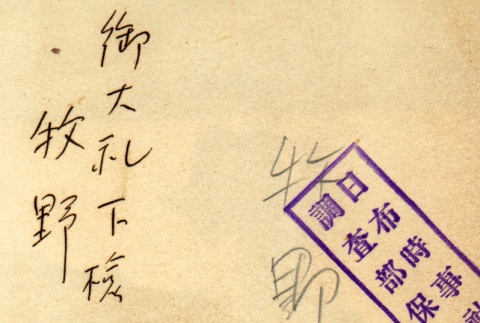 御大礼下検
牧野
牧野
日布時事社
調査部保